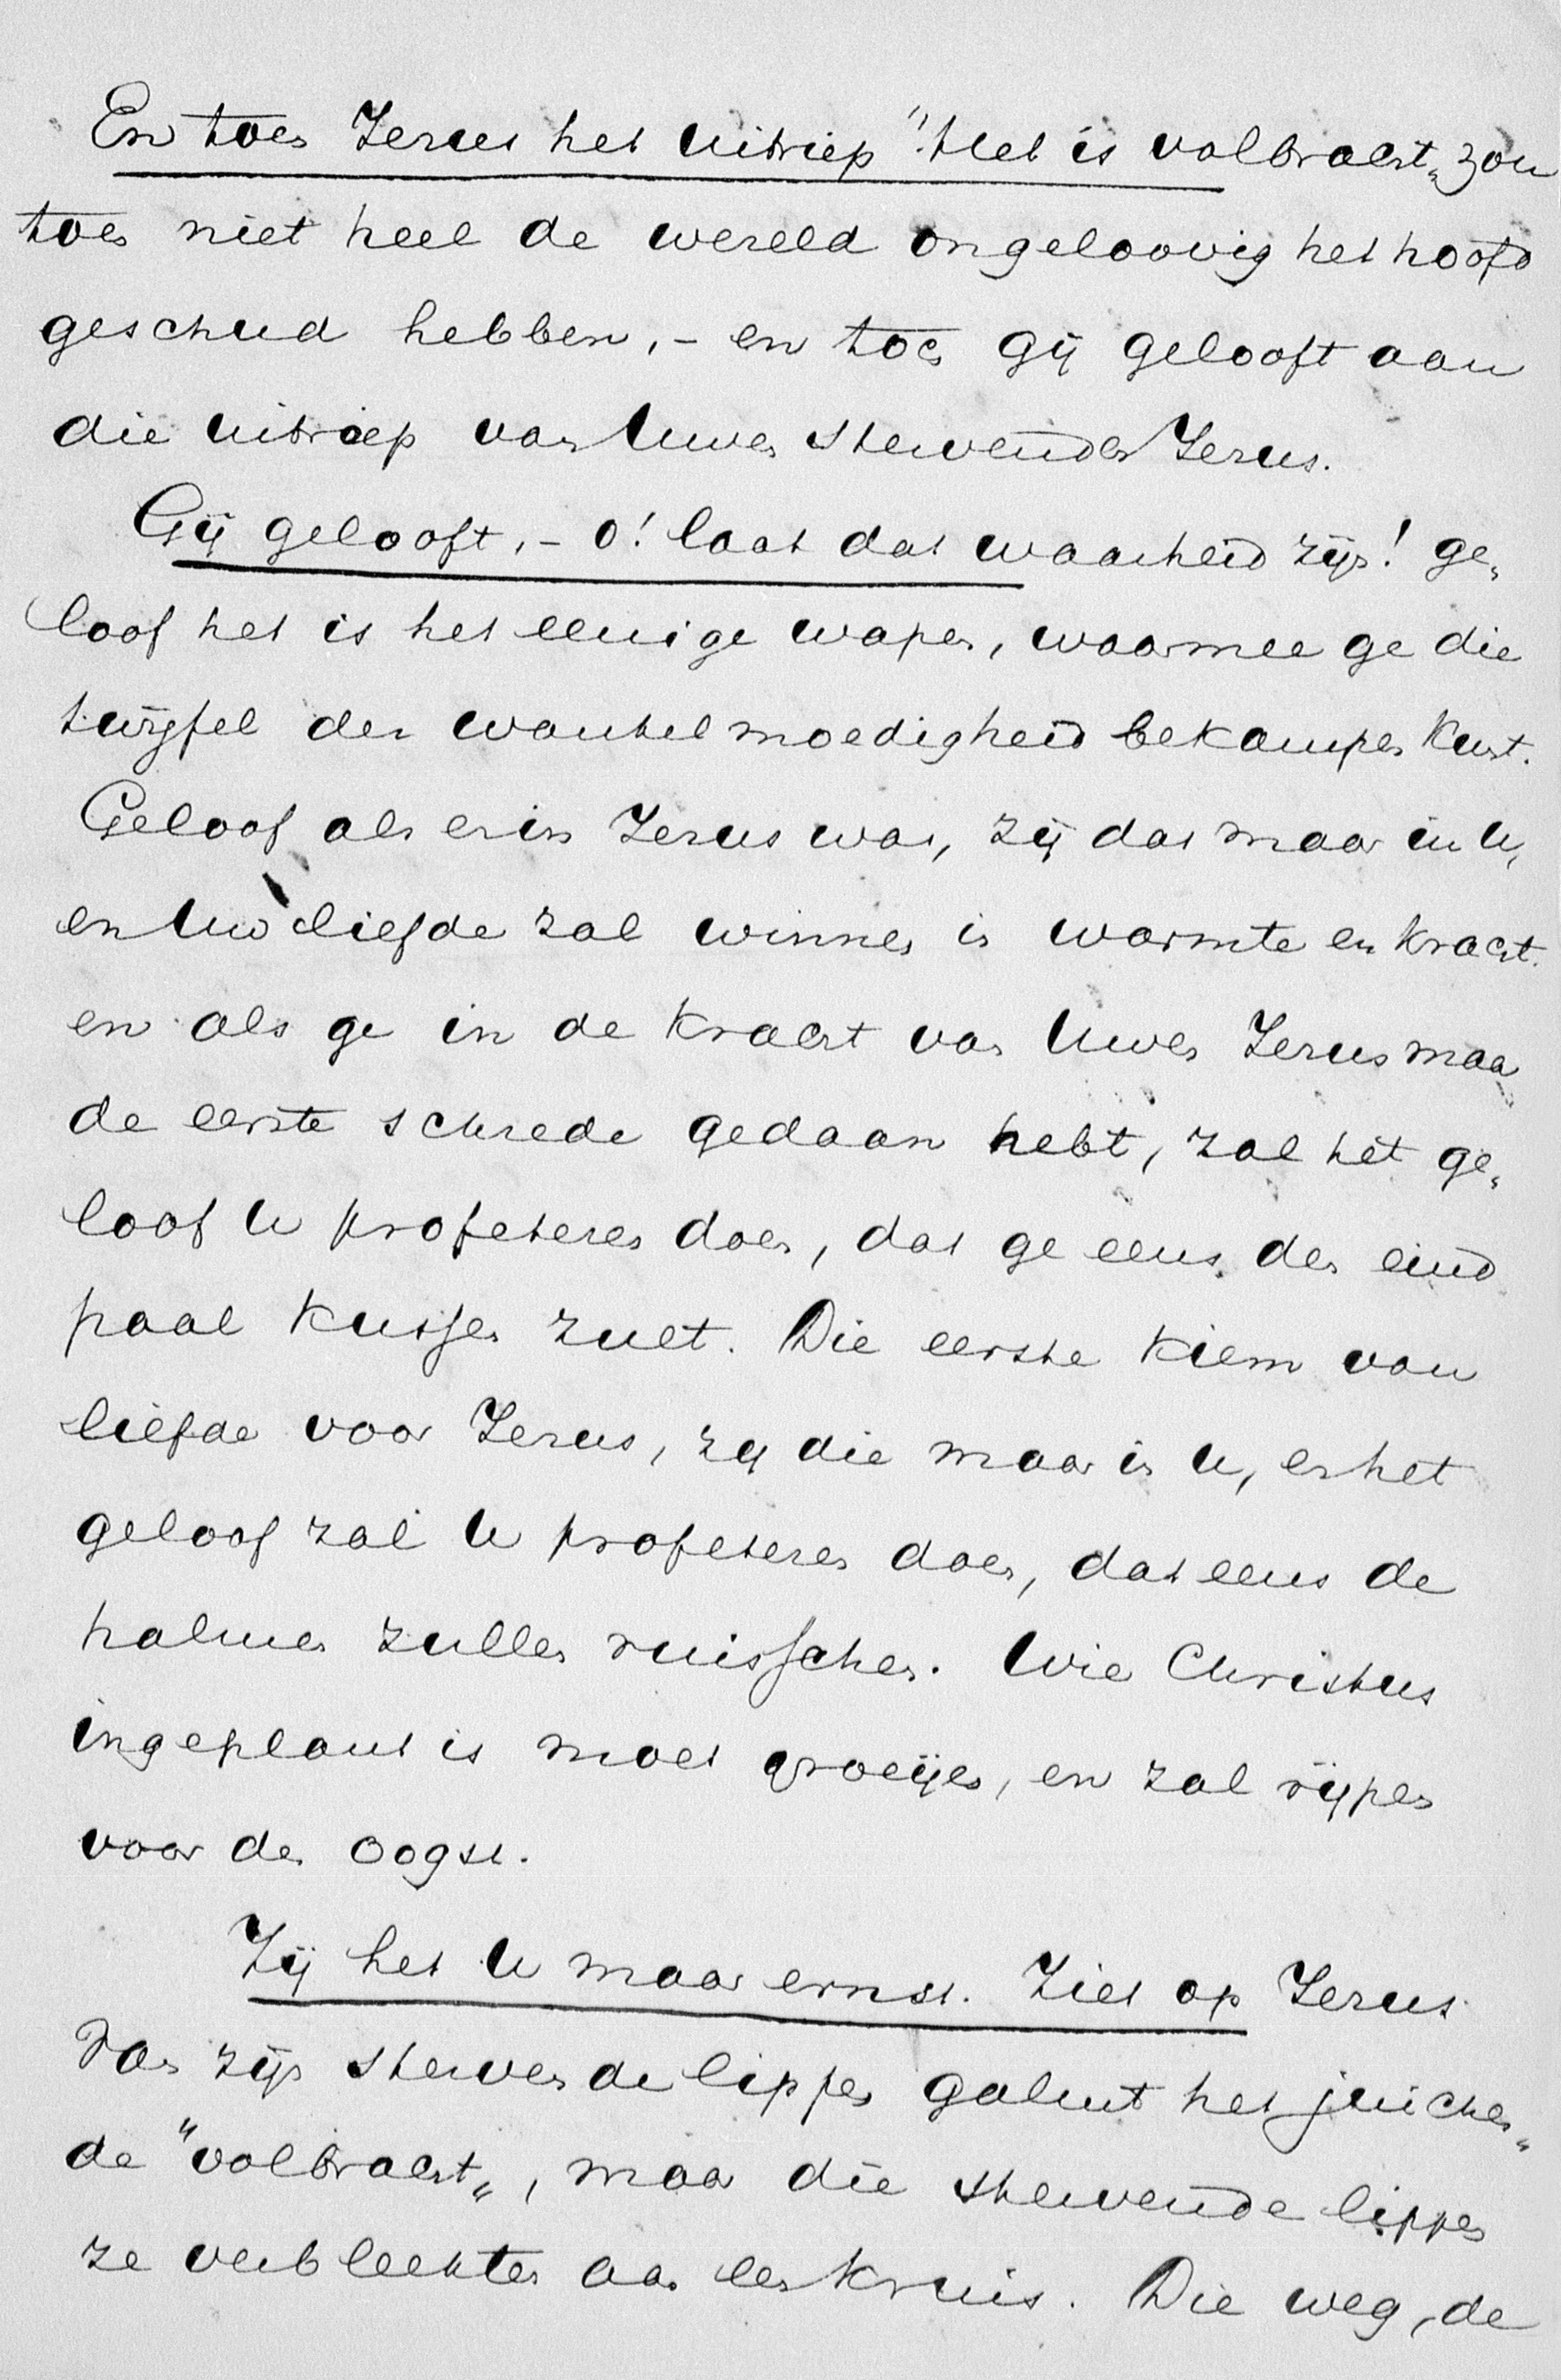 En toen Jezus het uitriep "Het is volbracht„ zou
toen niet heel de wereld ongeloovig het hoofd
geschud hebben, - en toch gij gelooft aan
die uitroep van Uwen stervenden Jezus.
Gij gelooft, - o! laat dat waarheid zijn! ge„
loof het is het eenige wapen, waarmee ge die
twijfel der wankelmoedigheid bekampen kunt.
Geloof als er in Jezus was, zij dat maar in U,
en Uw liefde zal winnen in warmte en kracht.
en als ge in de kracht van Uwen Jezus maar
de eerste schrede gedaan hebt, zal het ge„
loof U profeteren doen, dat ge eens den eind
paal kussen zult. Die eerste kiem van
liefde voor Jezus, zij die maar in U, en het
geloof zal U profeteren doen, dat eens de
halmen zullen ruisschen. Wie Christus
ingeplant is moet groeijen, en zal rijpen
voor den oogst.
Zij het U maar ernst. Ziet op Jezus
Van zijn stervende lippen galmt het juichen„
de "volbracht„, maar die stervende lippen
ze verbleekten aan een kruis. Die weg, de